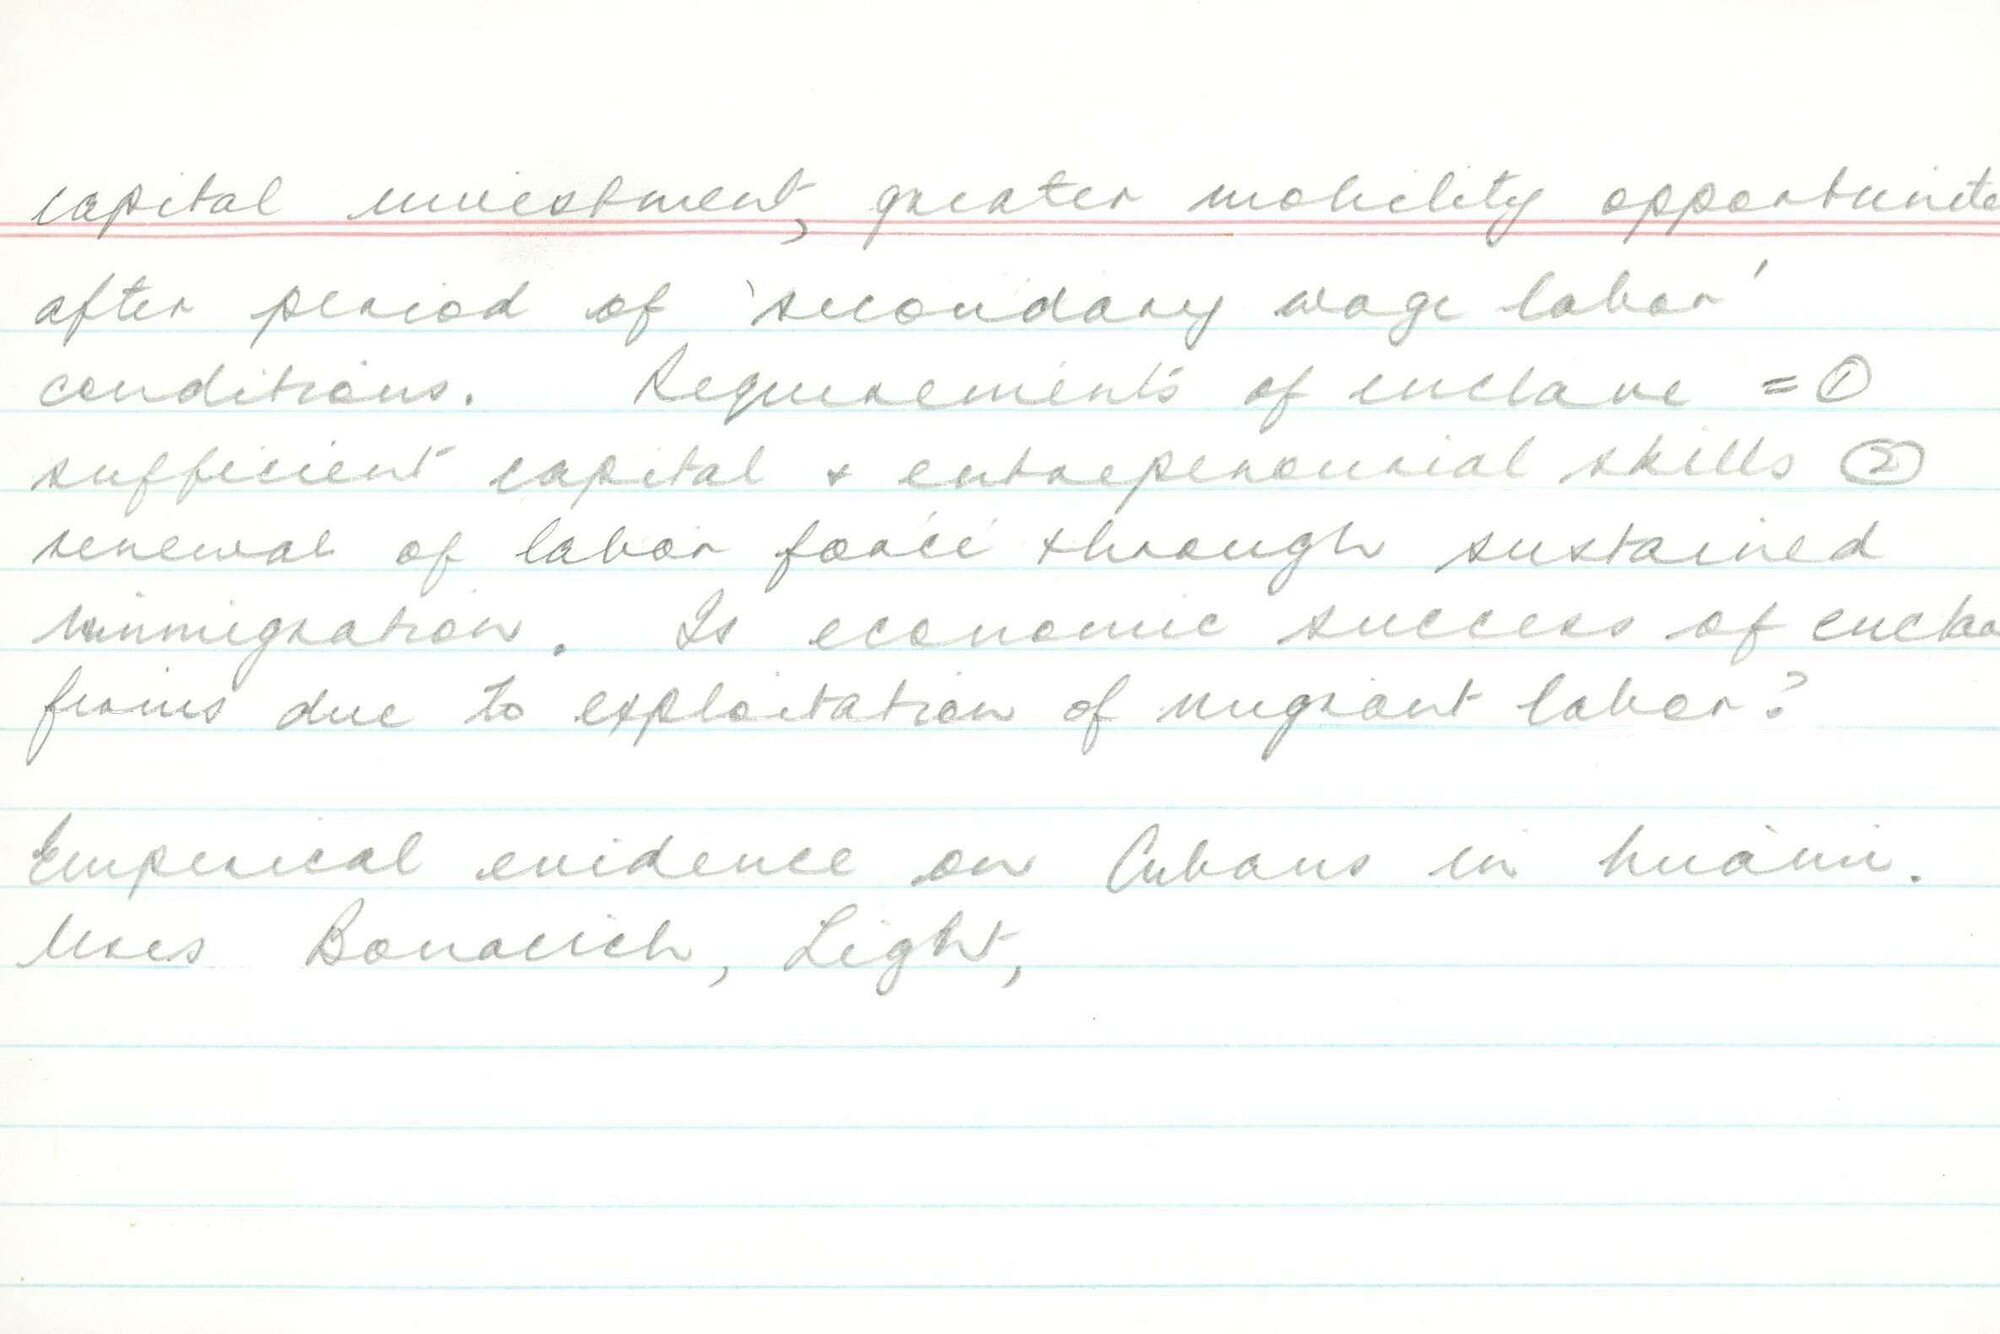 capital investment, greater mobility opportunite
after period of 'secondary wage labor'
conditions. Requirements of enclave = ①
sufficient capital + entreperonurial skills ②
renewal of labor force through sustained
immigration. Is economic success of enclav
firms due to exploitation of migrant labor?
Emperical evidence on Cubans in Miami.
Uses Bonacich, Light,